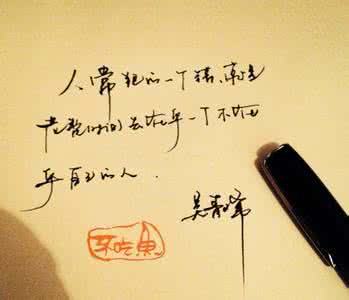 人、常犯的一个错、就是
花费时间去在乎一个不在
乎自己的人.
吴青峰
不吃鱼